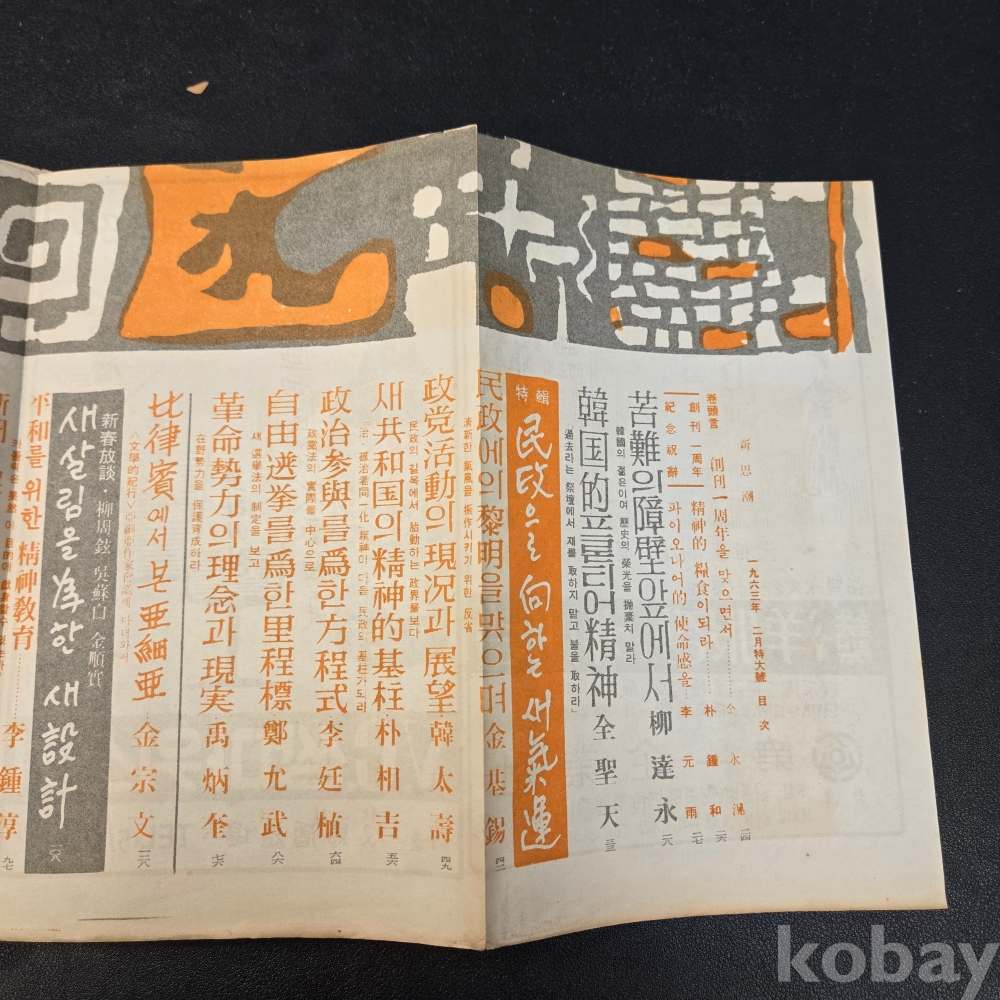 新思潮 一九六三年 二月特大號 目次
卷頭言 創刊一周年을 맞으면서 金永滉
創刊一周年 紀念祝辭
精神的 糧食이 되라 朴鍾和
파이오니어的 使命感을 李元雨
苦難의 障壁 앞에서 柳達永
韓國의 젊은이여 歷史의 榮光을 抛棄치 말라
韓国的 프론티어 精神 全聖天
過去라는 祭壇에서 재를 取하지 말고 불을 取하라
特輯 民政으로 向하는 새 氣運
民政에의 黎明을 맞으며 金基錫 四二
清新한 氣風을 振作시키기 위한 反省
政党活動의 現况과 展望 韓太壽 四九
民政의 길목에서 胎動하는 政界를 보다
새共和国의 精神的 基柱 朴相吉 五六
政治参與를 爲한 方程式 李廷植 六四
政黨法의 實際를 中心으로
自由選挙를 爲한 里程標 鄭允武
새 選擧法의 制定을 보고
革命勢力의 理念과 現実 禹炳奎
在野勢力을 保護育成하라
比律賓에서 본 亜細亜 金宗文
新春放談·柳周鉉 吳蘇白 金順實
새살림을 위한 새 設計
平和를 위한 精神敎育 李鍾淳 九七
kobay